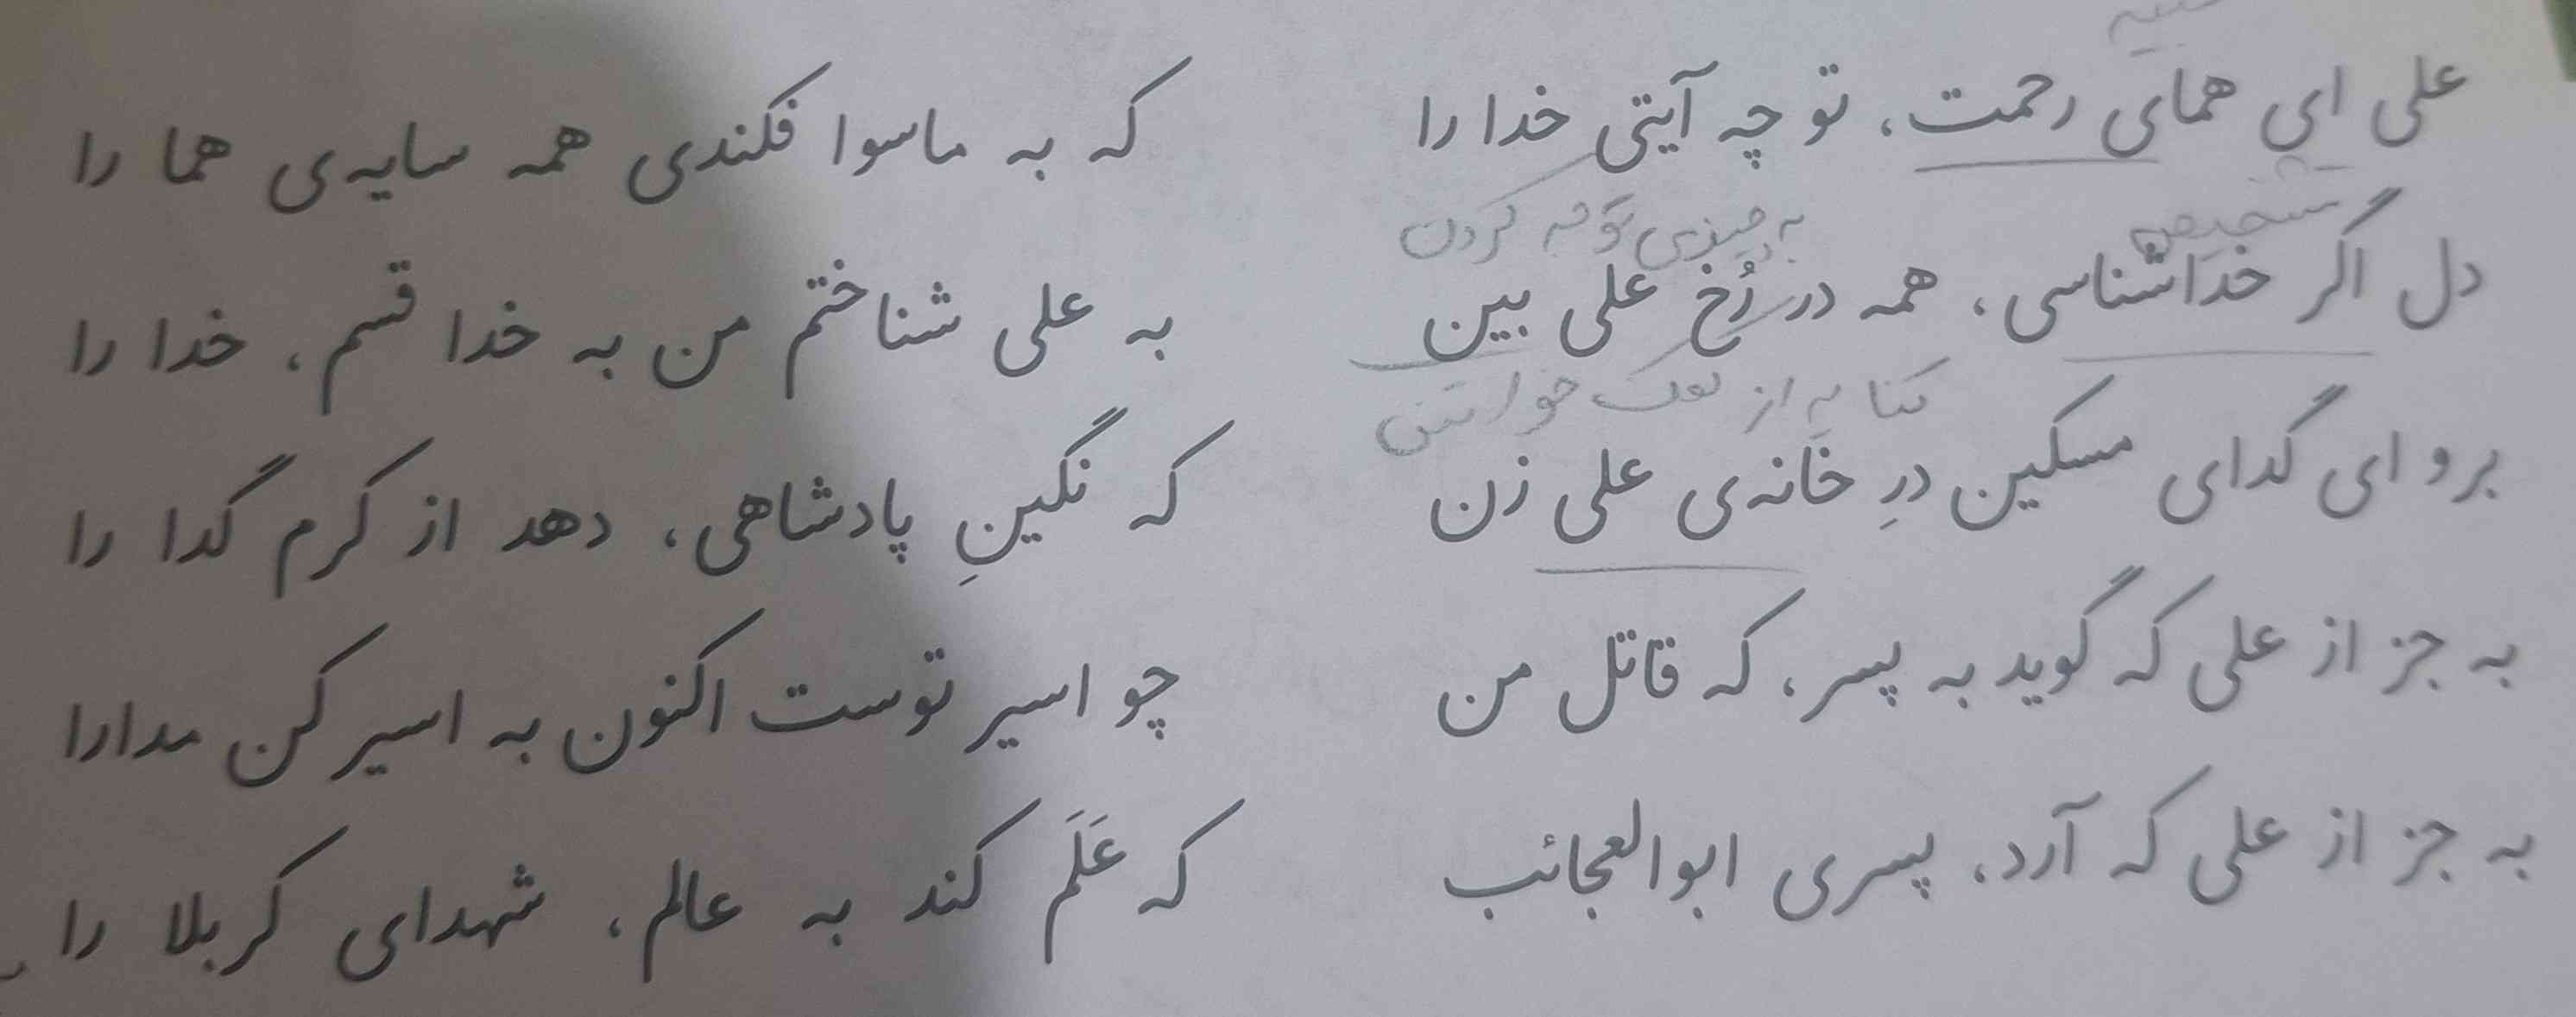 تشبیه
علی ای همای رحمت، تو چه آیتی خدا را که به ماسوا فکندی همه سایه‌ی هما را
تشخیص
به چیزی توجه کردن
دل اگر خداشناسی، همه در رُخ علی بین به علی شناختم من به خدا قسم، خدا را
کنایه از کمک خواستن
برو ای گدای مسکین درِ خانه‌ی علی زن که نگینِ پادشاهی، دهد از کرم گدا را
به جز از علی که گوید به پسر، که قاتل من چو اسیر توست اکنون به اسیر کن مدارا
به جز از علی که آرد، پسری ابوالعجائب که عَلَم کند به عالم، شهدای کربلا را